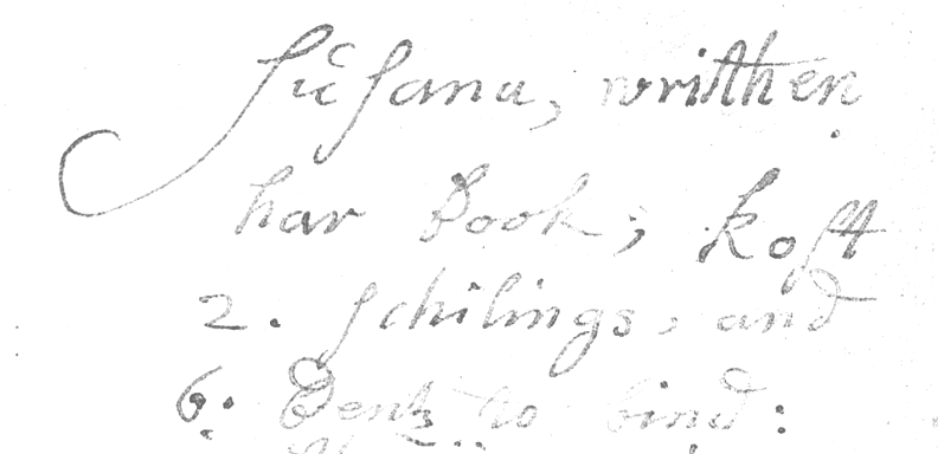 Sŭſana, writthen
har book; koſt
2. ſchilings, and
6: Pentz to bind: